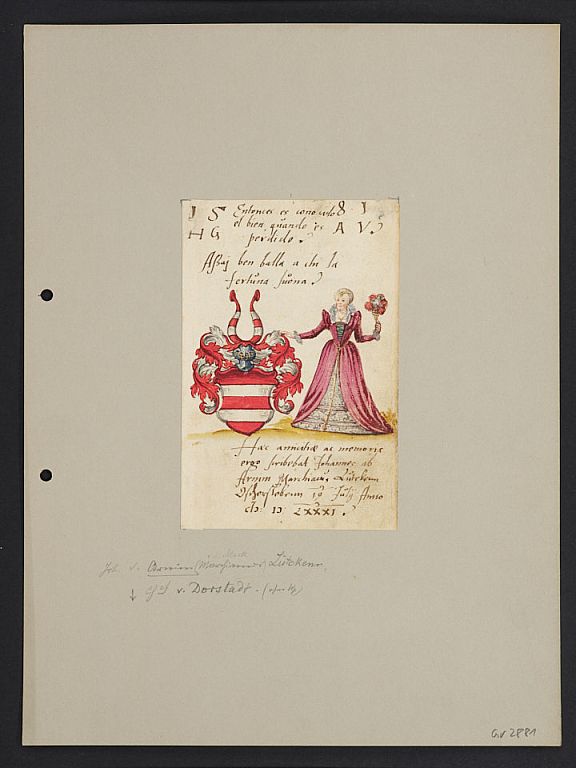 1 5 Entonces es conocido 8 1
el bien quando es A V
H G perdido.
Assaj ben balla a chi la
fortuna suona
Hæc amicitiæ ac memoriæ
ergo scribebat Johannes ab
Arnim Marchiacus
18 Julij Anno
LXXXI.
Joh v. Arnim Lütckens,
↓ v. Dorstadt.
G.v 2881